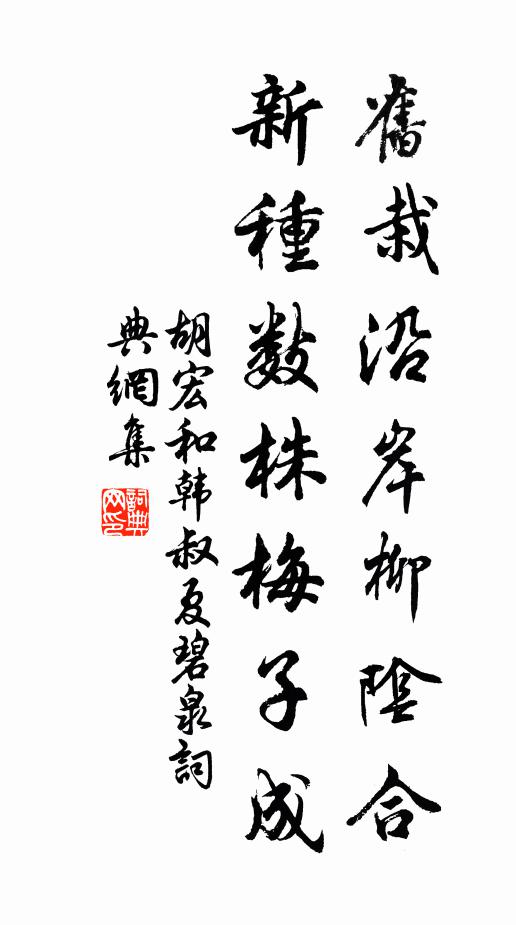 舊栽沿岸柳陰合
新種數株梅子成
胡宏和韩叔夏碧泉詞
典網集
詞典网印